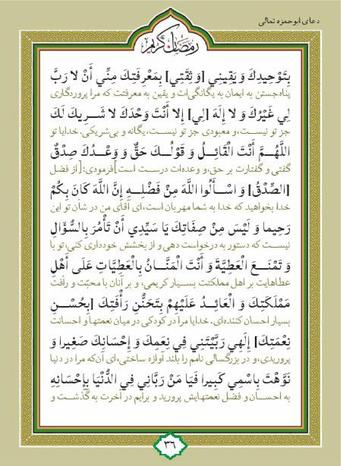 دعای ابوحمزه ثمالی
رمضان کریم
بِتَوْحِيدِكَ وَ يَقِينِي [وَ ثِقَتِي] بِمَعْرِفَتِكَ مِنِّي أَنْ لَا رَبَّ
پناه‌جستن به ایمان به یگانگی‌ات و یقین به معرفتت که مرا پروردگاری
لِي غَيْرُكَ وَ لَا إِلَهَ [لِي] إِلَّا أَنْتَ وَحْدَكَ لَا شَرِيكَ لَكَ
جز تو نیست، و معبودی جز تو نیست، یگانه و بی‌شریکی. خدایا تو
اللَّهُمَّ أَنْتَ الْقَائِلُ وَ قَوْلُكَ حَقٌّ وَ وَعْدُكَ صِدْقٌ
گفتی و گفتارت بر حق، و وعده‌ات درست است [فرمودی:] از فضل
[الصِّدْقُ] وَ اسْأَلُوا اللَّهَ مِنْ فَضْلِهِ إِنَّ اللَّهَ كَانَ بِكُمْ
خدا بخواهید که خدا به شما مهربان است، ای آقای من در شأن تو این
رَحِيما وَ لَيْسَ مِنْ صِفَاتِكَ يَا سَيِّدِي أَنْ تَأْمُرَ بِالسُّؤَالِ
نیست که دستور به درخواست دهی و از بخشش خودداری کنی، تو با
وَ تَمْنَعَ الْعَطِيَّةَ وَ أَنْتَ الْمَنَّانُ بِالْعَطِيَّاتِ عَلَى أَهْلِ
عطاهایت بر اهل مملکتت بسیار کریمی، و بر آنان با محبّت و رأفت
مَمْلَكَتِكَ وَ الْعَائِدُ عَلَيْهِمْ بِتَحَنُّنِ رَأْفَتِكَ [بِحُسْنِ
بسیار احسان کننده‌ای. خدایا مرا در کودکی در میان نعمتها و احسانت
نِعْمَتِكَ] إِلَهِي رَبَّيْتَنِي فِي نِعَمِكَ وَ إِحْسَانِكَ صَغِيرا وَ
پروریدی، و در بزرگسالی نامم را بلند آوازه ساختی، ای آن‌که مرا در دنیا
نَوَّهْتَ بِاسْمِي كَبِيرا فَيَا مَنْ رَبَّانِي فِي الدُّنْيَا بِإِحْسَانِهِ
به احسان و فضل نعمتهایش پرورید و برایم در آخرت به گذشت و
۳۶